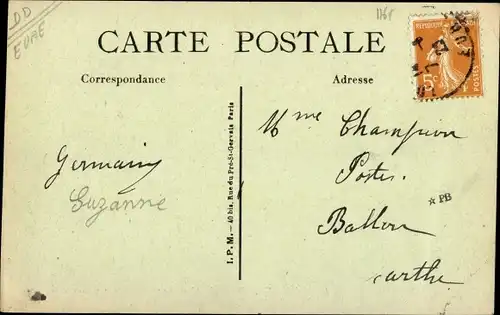 DD
EURE
1161
CARTE POSTALE
Correspondance
Adresse
5c
POSTES
Mme Champion
Germain
Postes
Suzanne
★ PB
Ballon
Sarthe
I. P. M. - 40 bis, Rue du Pré-St-Gervais Paris